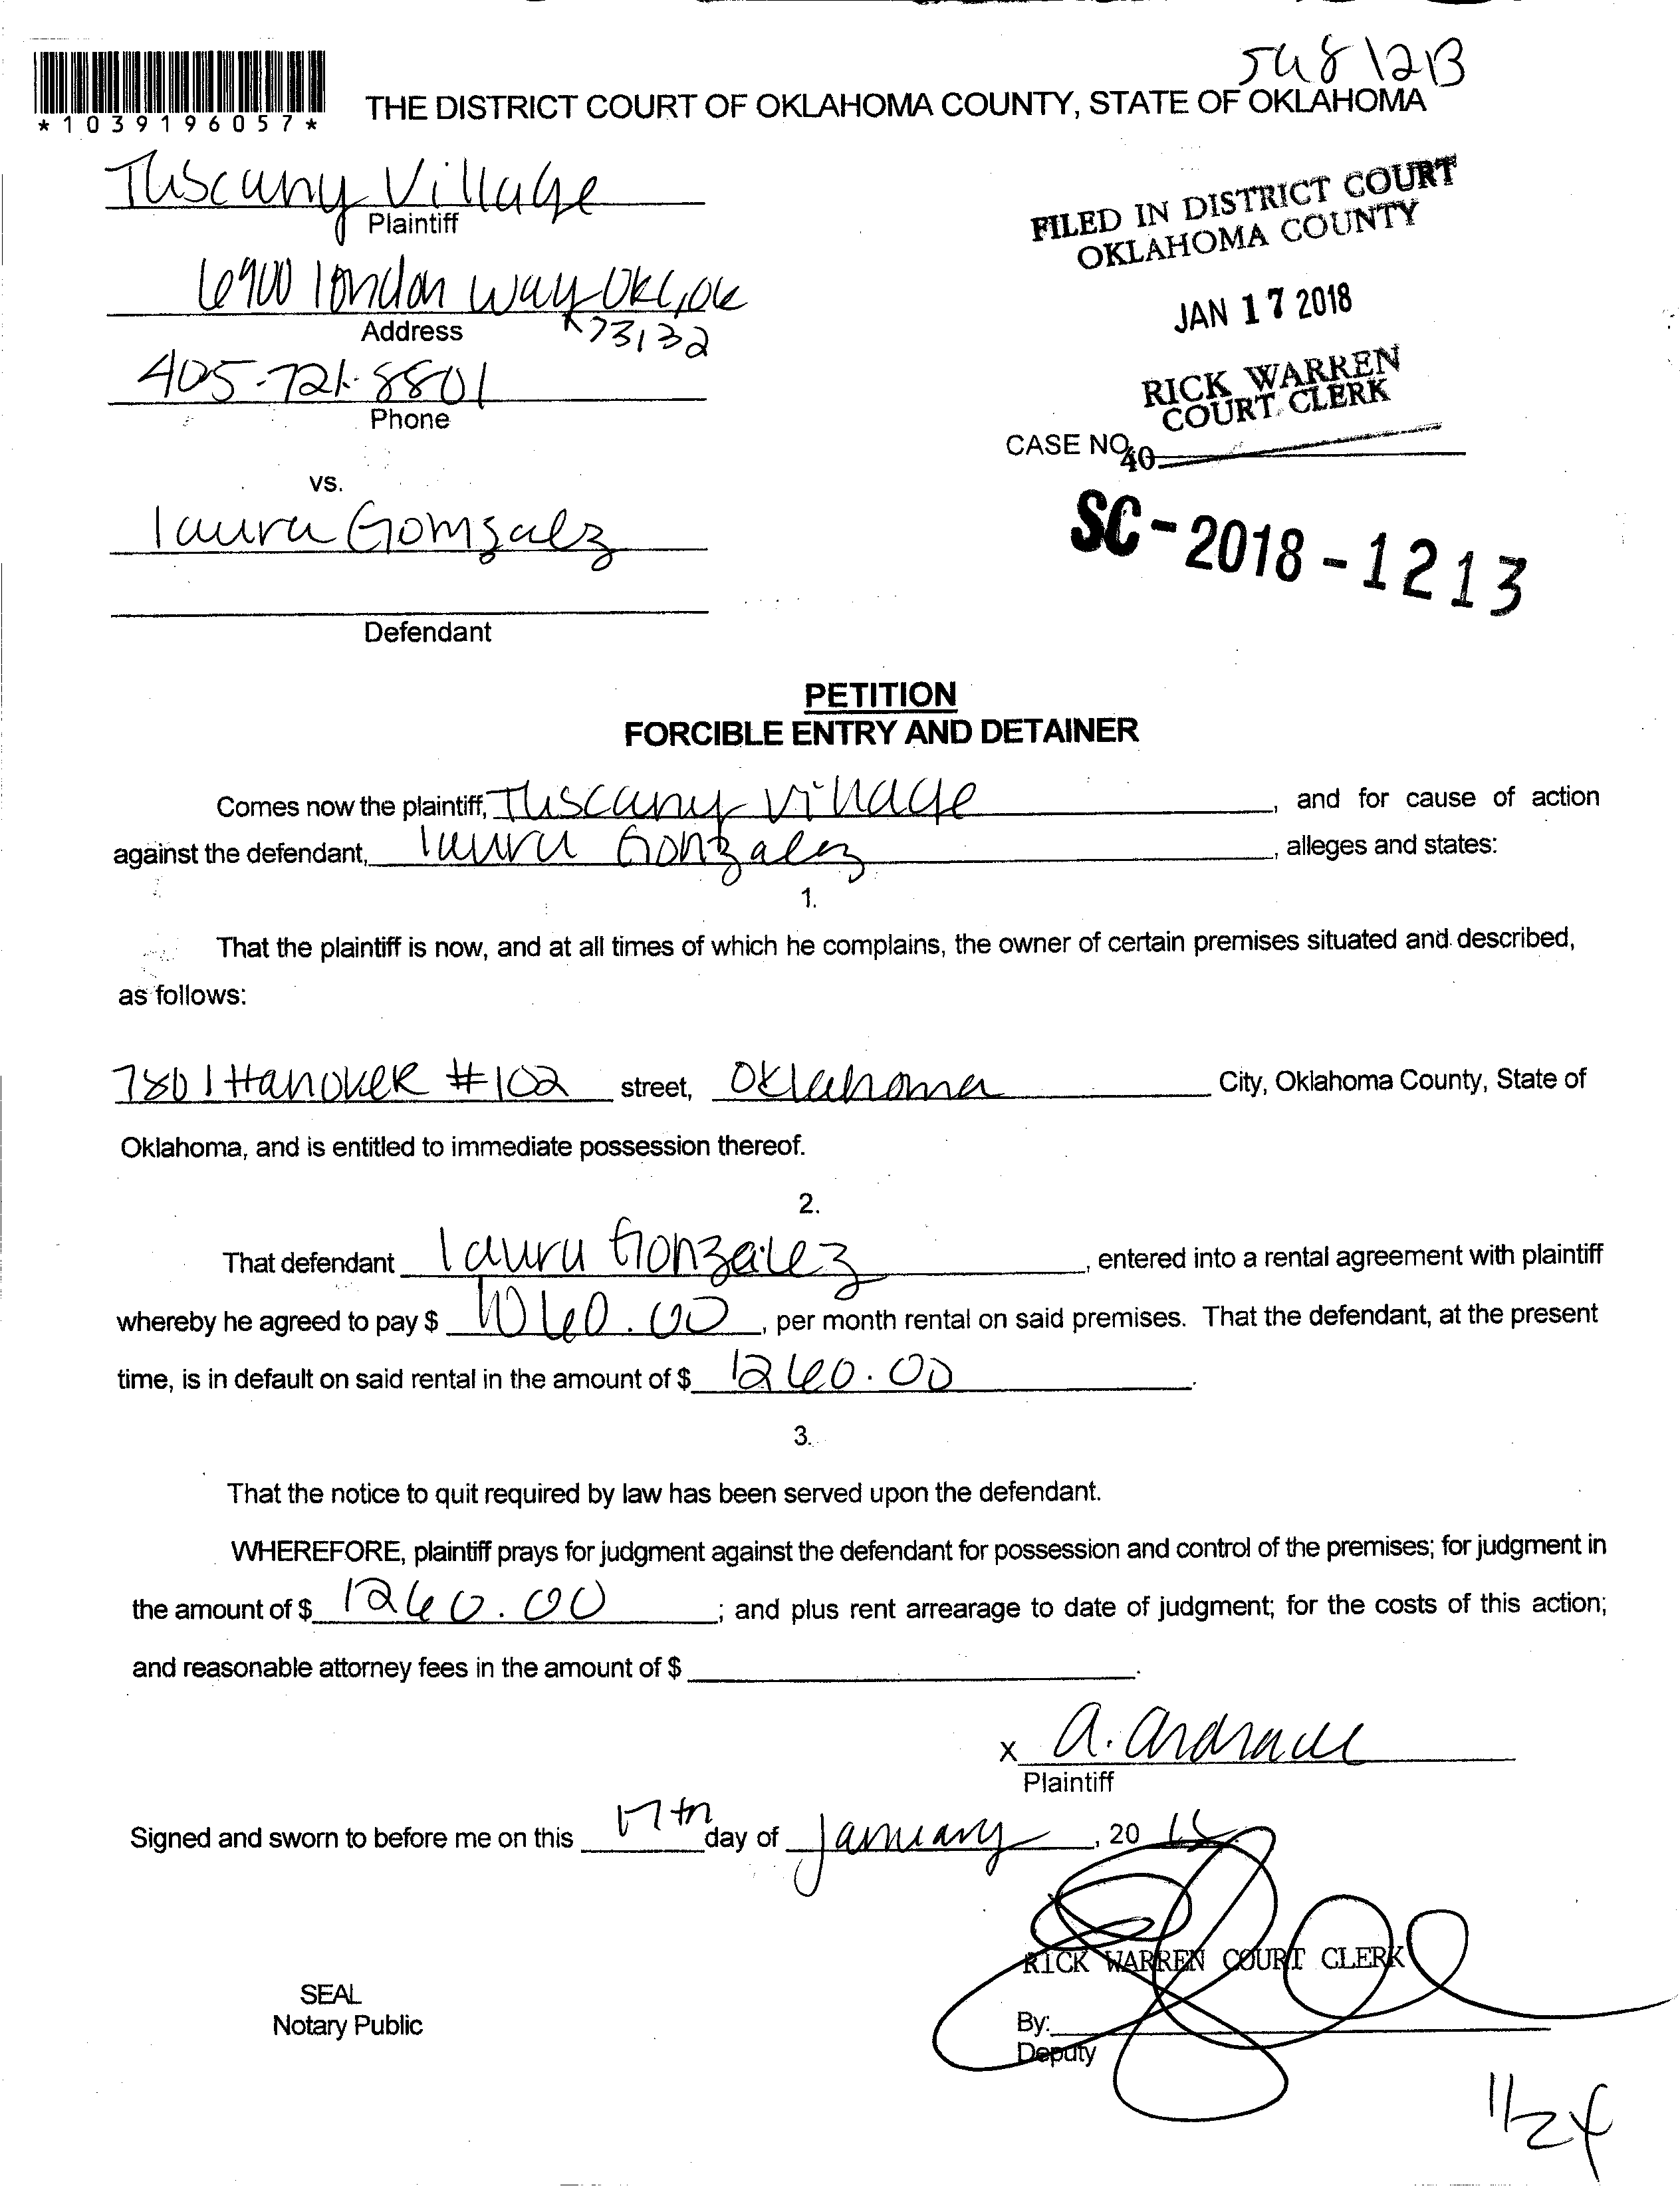 5481213
*1039196057*
THE DISTRICT COURT OF OKLAHOMA COUNTY, STATE OF OKLAHOMA
Tuscany Village
Plaintiff
6900 london way OKC, OK
Address
73132
405-721-8801
Phone
FILED IN DISTRICT COURT
OKLAHOMA COUNTY
JAN 17 2018
RICK WARREN
COURT CLERK
CASE NO.
40
vs.
laura Gomzalez
SC-2018-1213
Defendant
PETITION
FORCIBLE ENTRY AND DETAINER
Comes now the plaintiff, Tuscany Village, and for cause of action
against the defendant, laura Gonzalez, alleges and states:
1.
That the plaintiff is now, and at all times of which he complains, the owner of certain premises situated and described,
as follows:
7801 Hanover #102 street, Oklahoma City, Oklahoma County, State of
Oklahoma, and is entitled to immediate possession thereof.
2.
That defendant laura Gonzalez, entered into a rental agreement with plaintiff
whereby he agreed to pay $ 1060.00, per month rental on said premises. That the defendant, at the present
time, is in default on said rental in the amount of $ 1260.00.
3.
That the notice to quit required by law has been served upon the defendant.
WHEREFORE, plaintiff prays for judgment against the defendant for possession and control of the premises; for judgment in
the amount of $ 1260.00; and plus rent arrearage to date of judgment; for the costs of this action;
and reasonable attorney fees in the amount of $ .
x A. Andrade
Plaintiff
Signed and sworn to before me on this 17th day of January, 20 18
RICK WARREN COURT CLERK
SEAL
Notary Public
By:
Deputy
1/24